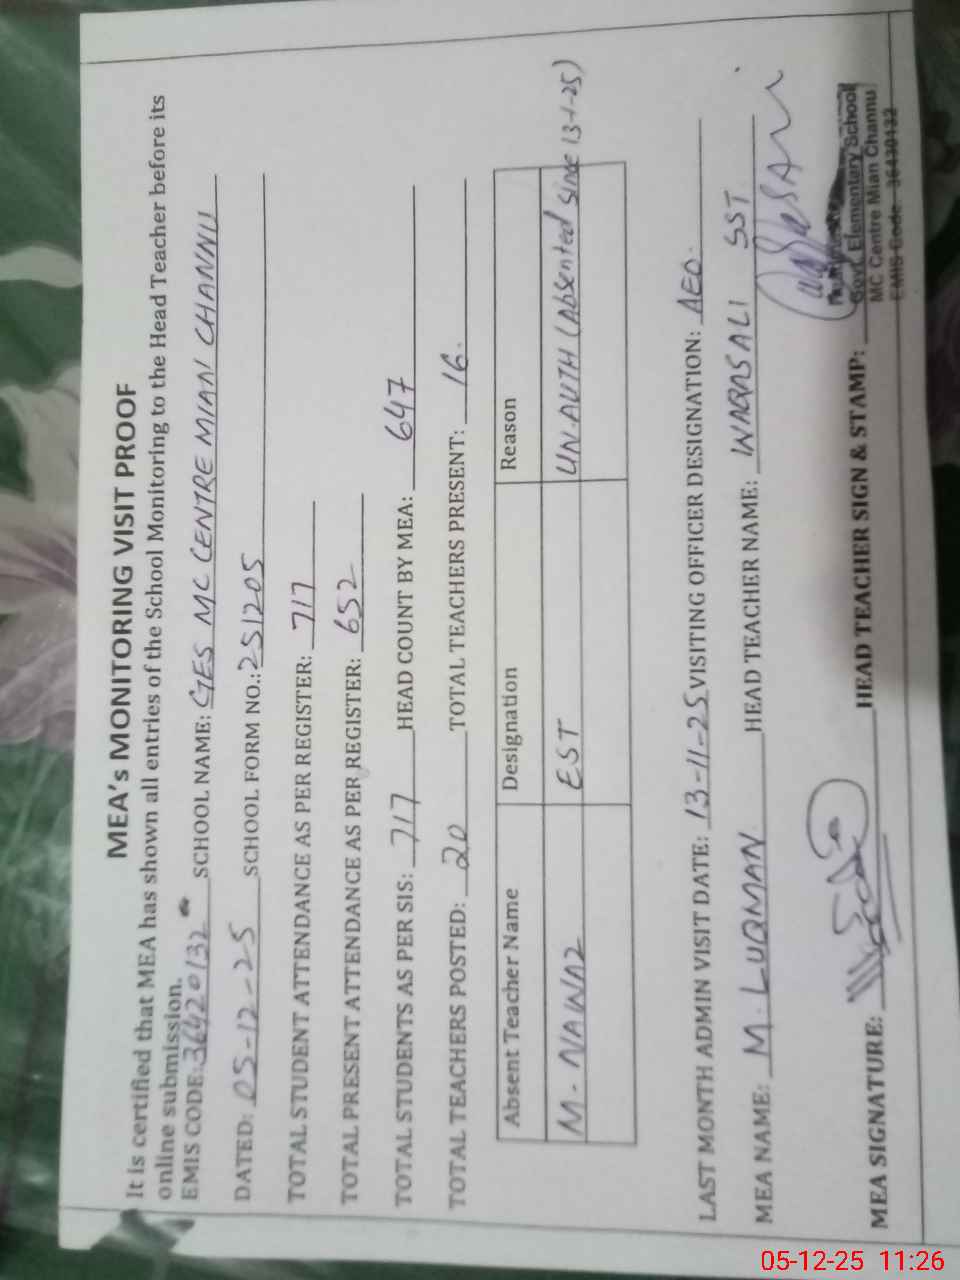 MEA's MONITORING VISIT PROOF
It is certified that MEA has shown all entries of the School Monitoring to the Head Teacher before its
online submission.
EMIS CODE: 36420132 SCHOOL NAME: GES MC CENTRE MIAN CHANNU
DATED: 05-12-25 SCHOOL FORM NO.: 251205
TOTAL STUDENT ATTENDANCE AS PER REGISTER: 717
TOTAL PRESENT ATTENDANCE AS PER REGISTER: 652
TOTAL STUDENTS AS PER SIS: 717 HEAD COUNT BY MEA: 647
TOTAL TEACHERS POSTED: 20 TOTAL TEACHERS PRESENT: 16.
Absent Teacher Name Designation Reason
M. NAWAZ EST UN-AUTH (Absented since 13-1-25)
LAST MONTH ADMIN VISIT DATE: 13-11-25 VISITING OFFICER DESIGNATION: AEO.
MEA NAME: M. LUQMAN HEAD TEACHER NAME: WAQAS ALI SST
MEA SIGNATURE: HEAD TEACHER SIGN & STAMP:
Govt. Elementary School
MC Centre Mian Channu
EMIS Code
05-12-25 11:26